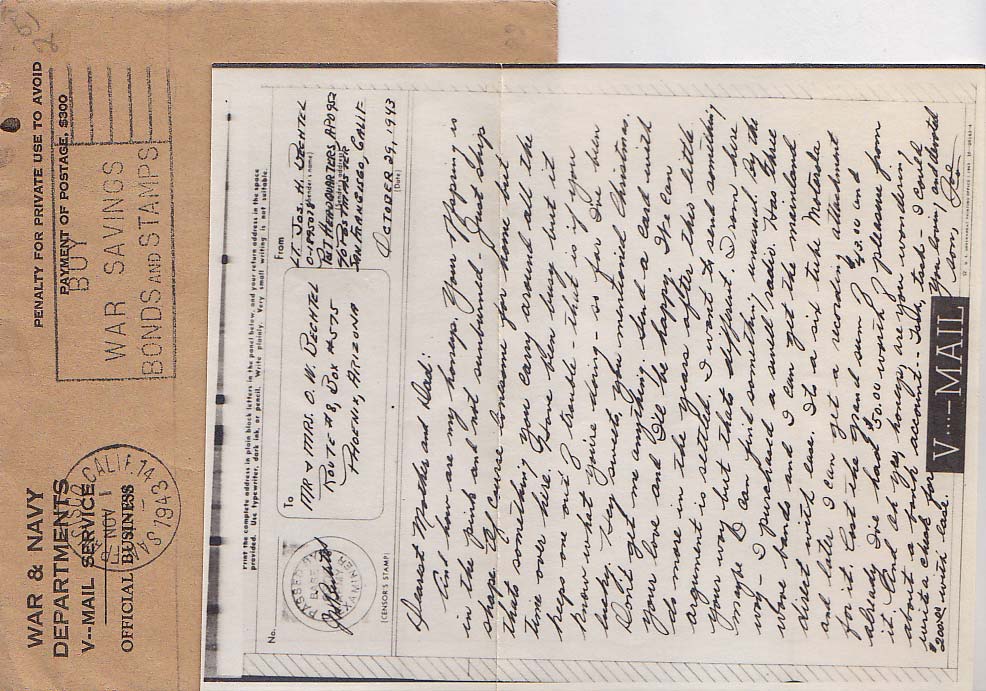 WAR & NAVY
DEPARTMENTS
V--MAIL SERVICE
OFFICIAL BUSINESS
PENALTY FOR PRIVATE USE TO AVOID
PAYMENT OF POSTAGE, $300
SAN FRANCISCO CALIF. 14
NOV 1
1943
BUY
WAR SAVINGS
BONDS AND STAMPS
Print the complete address in plain block letters in the panel below, and your return address in the space
provided. Use typewriter, dark ink, or pencil. Write plainly. Very small writing is not suitable.
No.
PASSED BY
BASE
ARMY
EXAMINER
(CENSOR'S STAMP)
To
MR & MRS. O. W. BECHTEL
ROUTE #8, BOX #575
PHOENIX, ARIZONA
From
LT. JOS. H. BECHTEL
(Sender's name)
HEADQUARTERS APO 952
(Sender's address)
% POSTMASTER
SAN FRANCISCO, CALIF
OCTOBER 29, 1943
(Date)
Dearest Mother and Dad:
And how are my honeys. Your offspring is
in the pink and not sunburned - Just ship
shape. Of course lonesome for home but
thats something you carry around all the
time over here. Have been busy but it
keeps one out of trouble - that is if you
know what you're doing - so far I've been
lucky. Say sweets, you mentioned Christmas.
Don't get me anything, send a card with
your love and I'll be happy. We can
do more in the years after, so this little
argument is settled. I want to send something
your way but thats different. From here
maybe I can find something unusual by the
way - I purchased a small radio. Has three
wave bands and I can get the mainland
direct with ease. Its a six tube Motorola
and later I can get a recording attachment
for it. Cost the grand sum of $43.00 and
already I've had $50.00 worth of pleasure from
it. And oh yes, honeys, are you wondering
about a bank account - Tsk, tsk - I could
write a check for
$200.00 with ease.
Your loving and devoted
son, Joe
V---MAIL